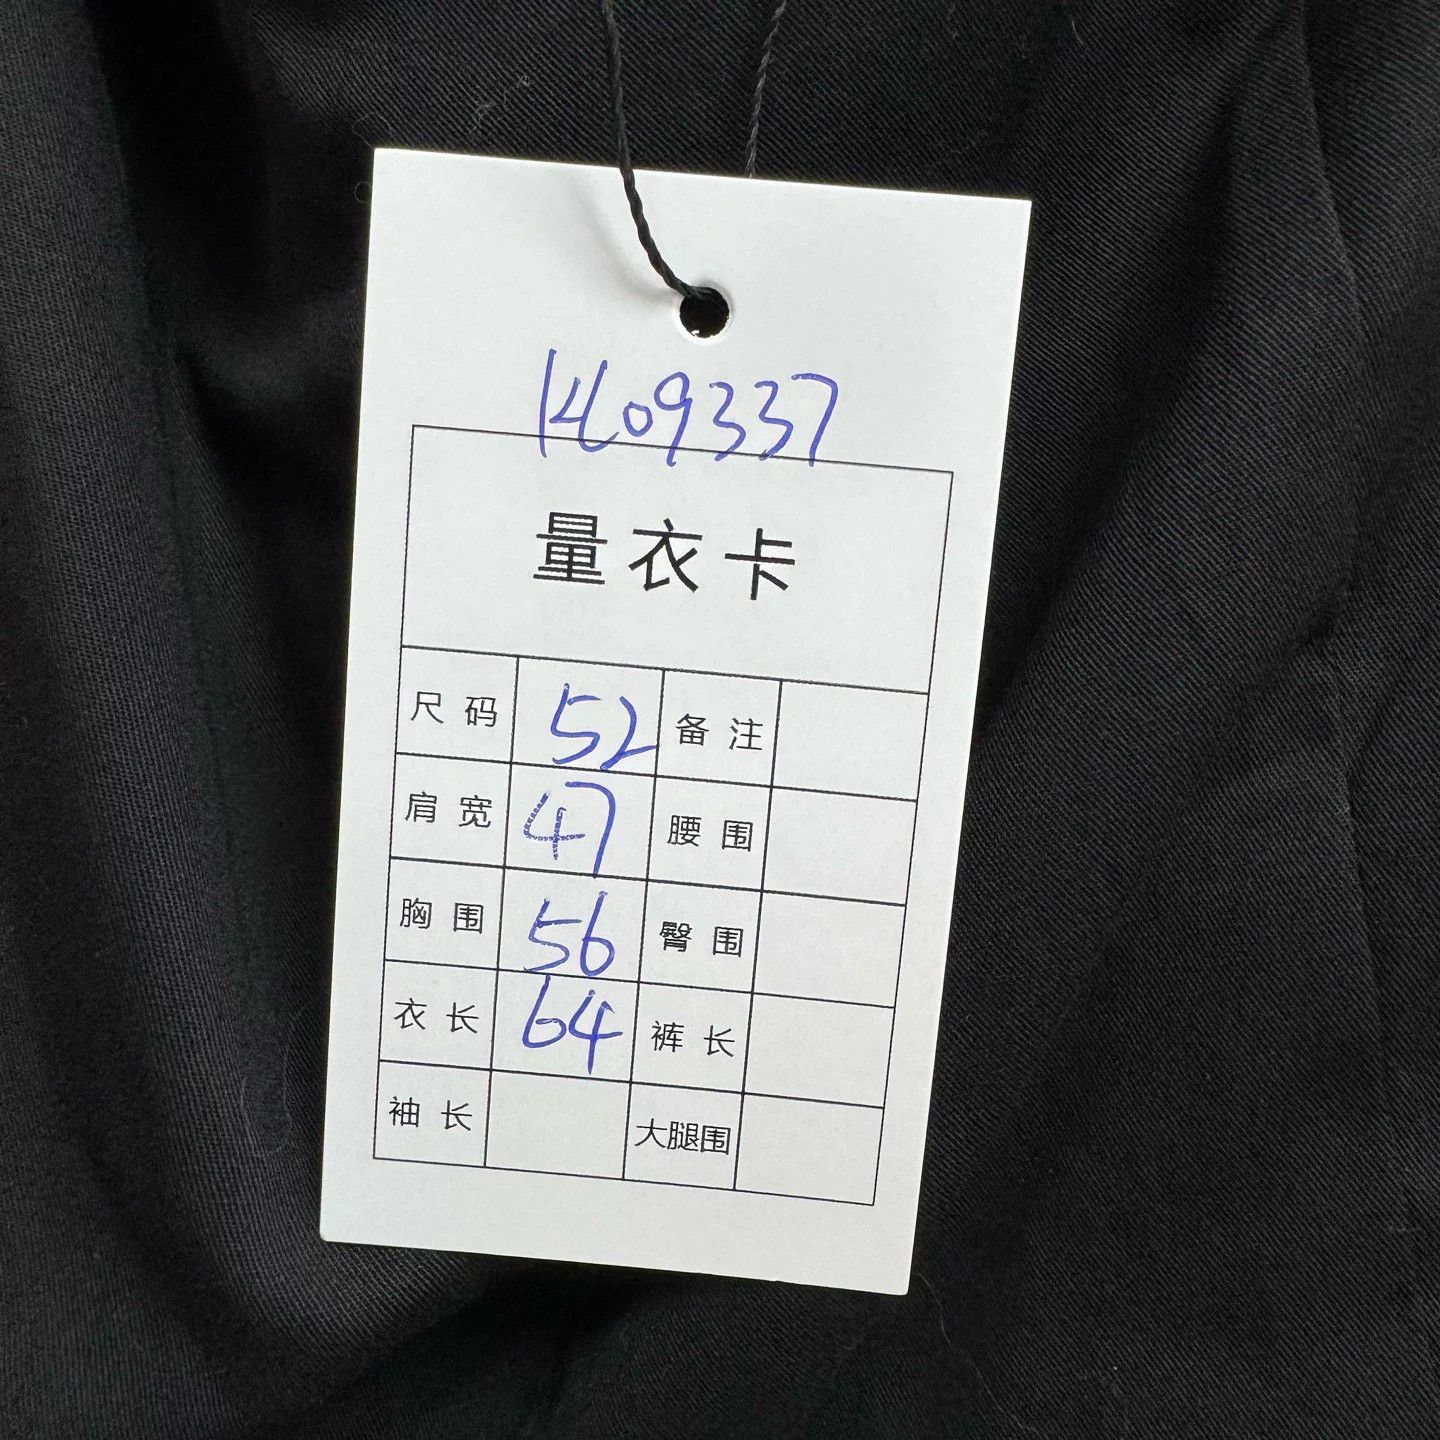 1409337
量衣卡
尺码 52 备注
肩宽 47 腰围
胸围 56 臀围
衣长 64 裤长
袖长 大腿围